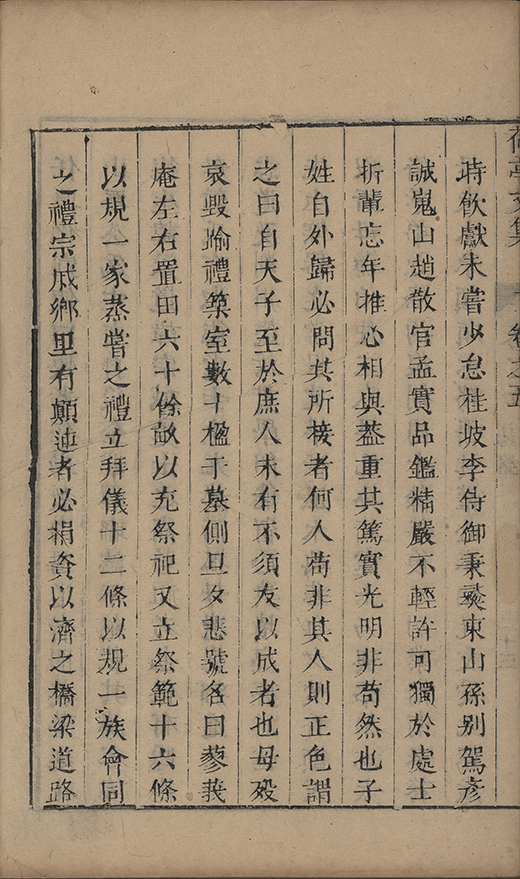 荷亭文集　卷之五
時飲獻未嘗少怠桂坡李侍御秉彜東山孫别駕彦
誠嵬山趙散官孟實品鑑精嚴不輕許可獨於處士
折輩忘年推心相與葢重其篤實光明非苟然也子
姓自外歸必問其所接者何人苟非其人則正色謂
之曰自天子至於庶人未有不須友以成者也母歿
哀毀踰禮築室數十楹于墓側旦夕悲號名曰蓼莪
庵左右置田六十餘畝以充祭祀又立祭範十六條
以規一家蒸嘗之禮立拜儀十二條以規一族會同
之禮宗戚鄉里有顛連者必捐資以濟之橋梁道路